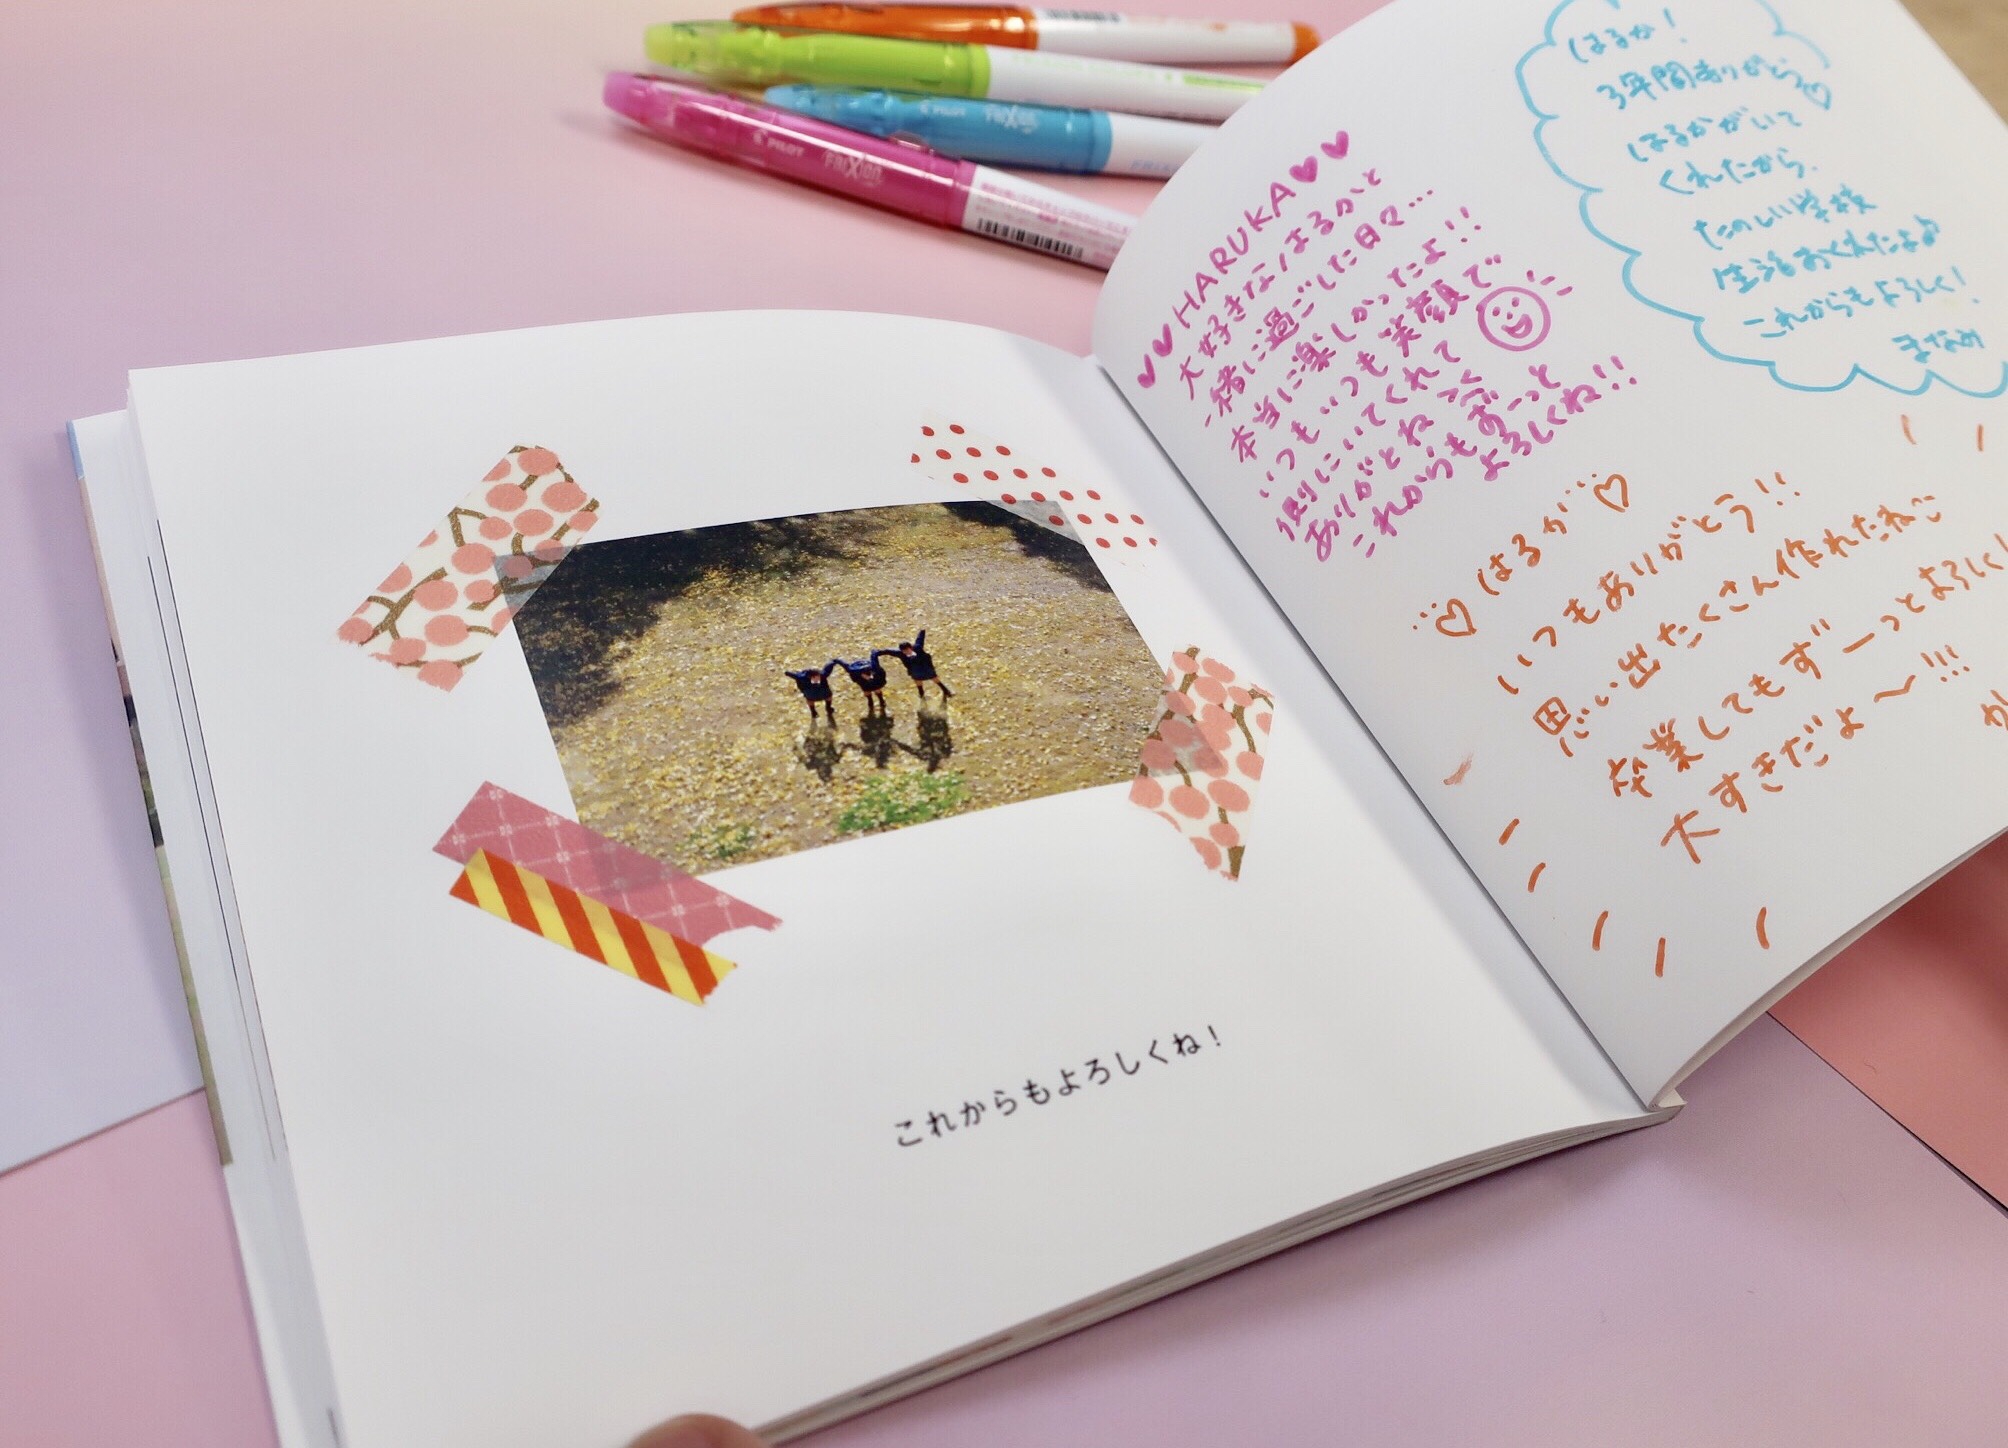 PILOT
FRIXION
PILOT
FRIXION
これからもよろしくね！
HARUKA
大好きなはるかと
一緒に過ごした日々…
本当に楽しかったよ!!
いつもいつも笑顔で
側にいてくれて
ありがとね
これからもずーっと
よろしくね!!
はるか！
3年間ありがとう
はるかがいて
くれたから、
たのしい学校
生活おくれたよ♪
これからもよろしく！
まなみ
はるか
いつもありがとう!!
思い出たくさん作れたねこ
卒業してもずーっとよろしく！
大すきだよ〜!!!